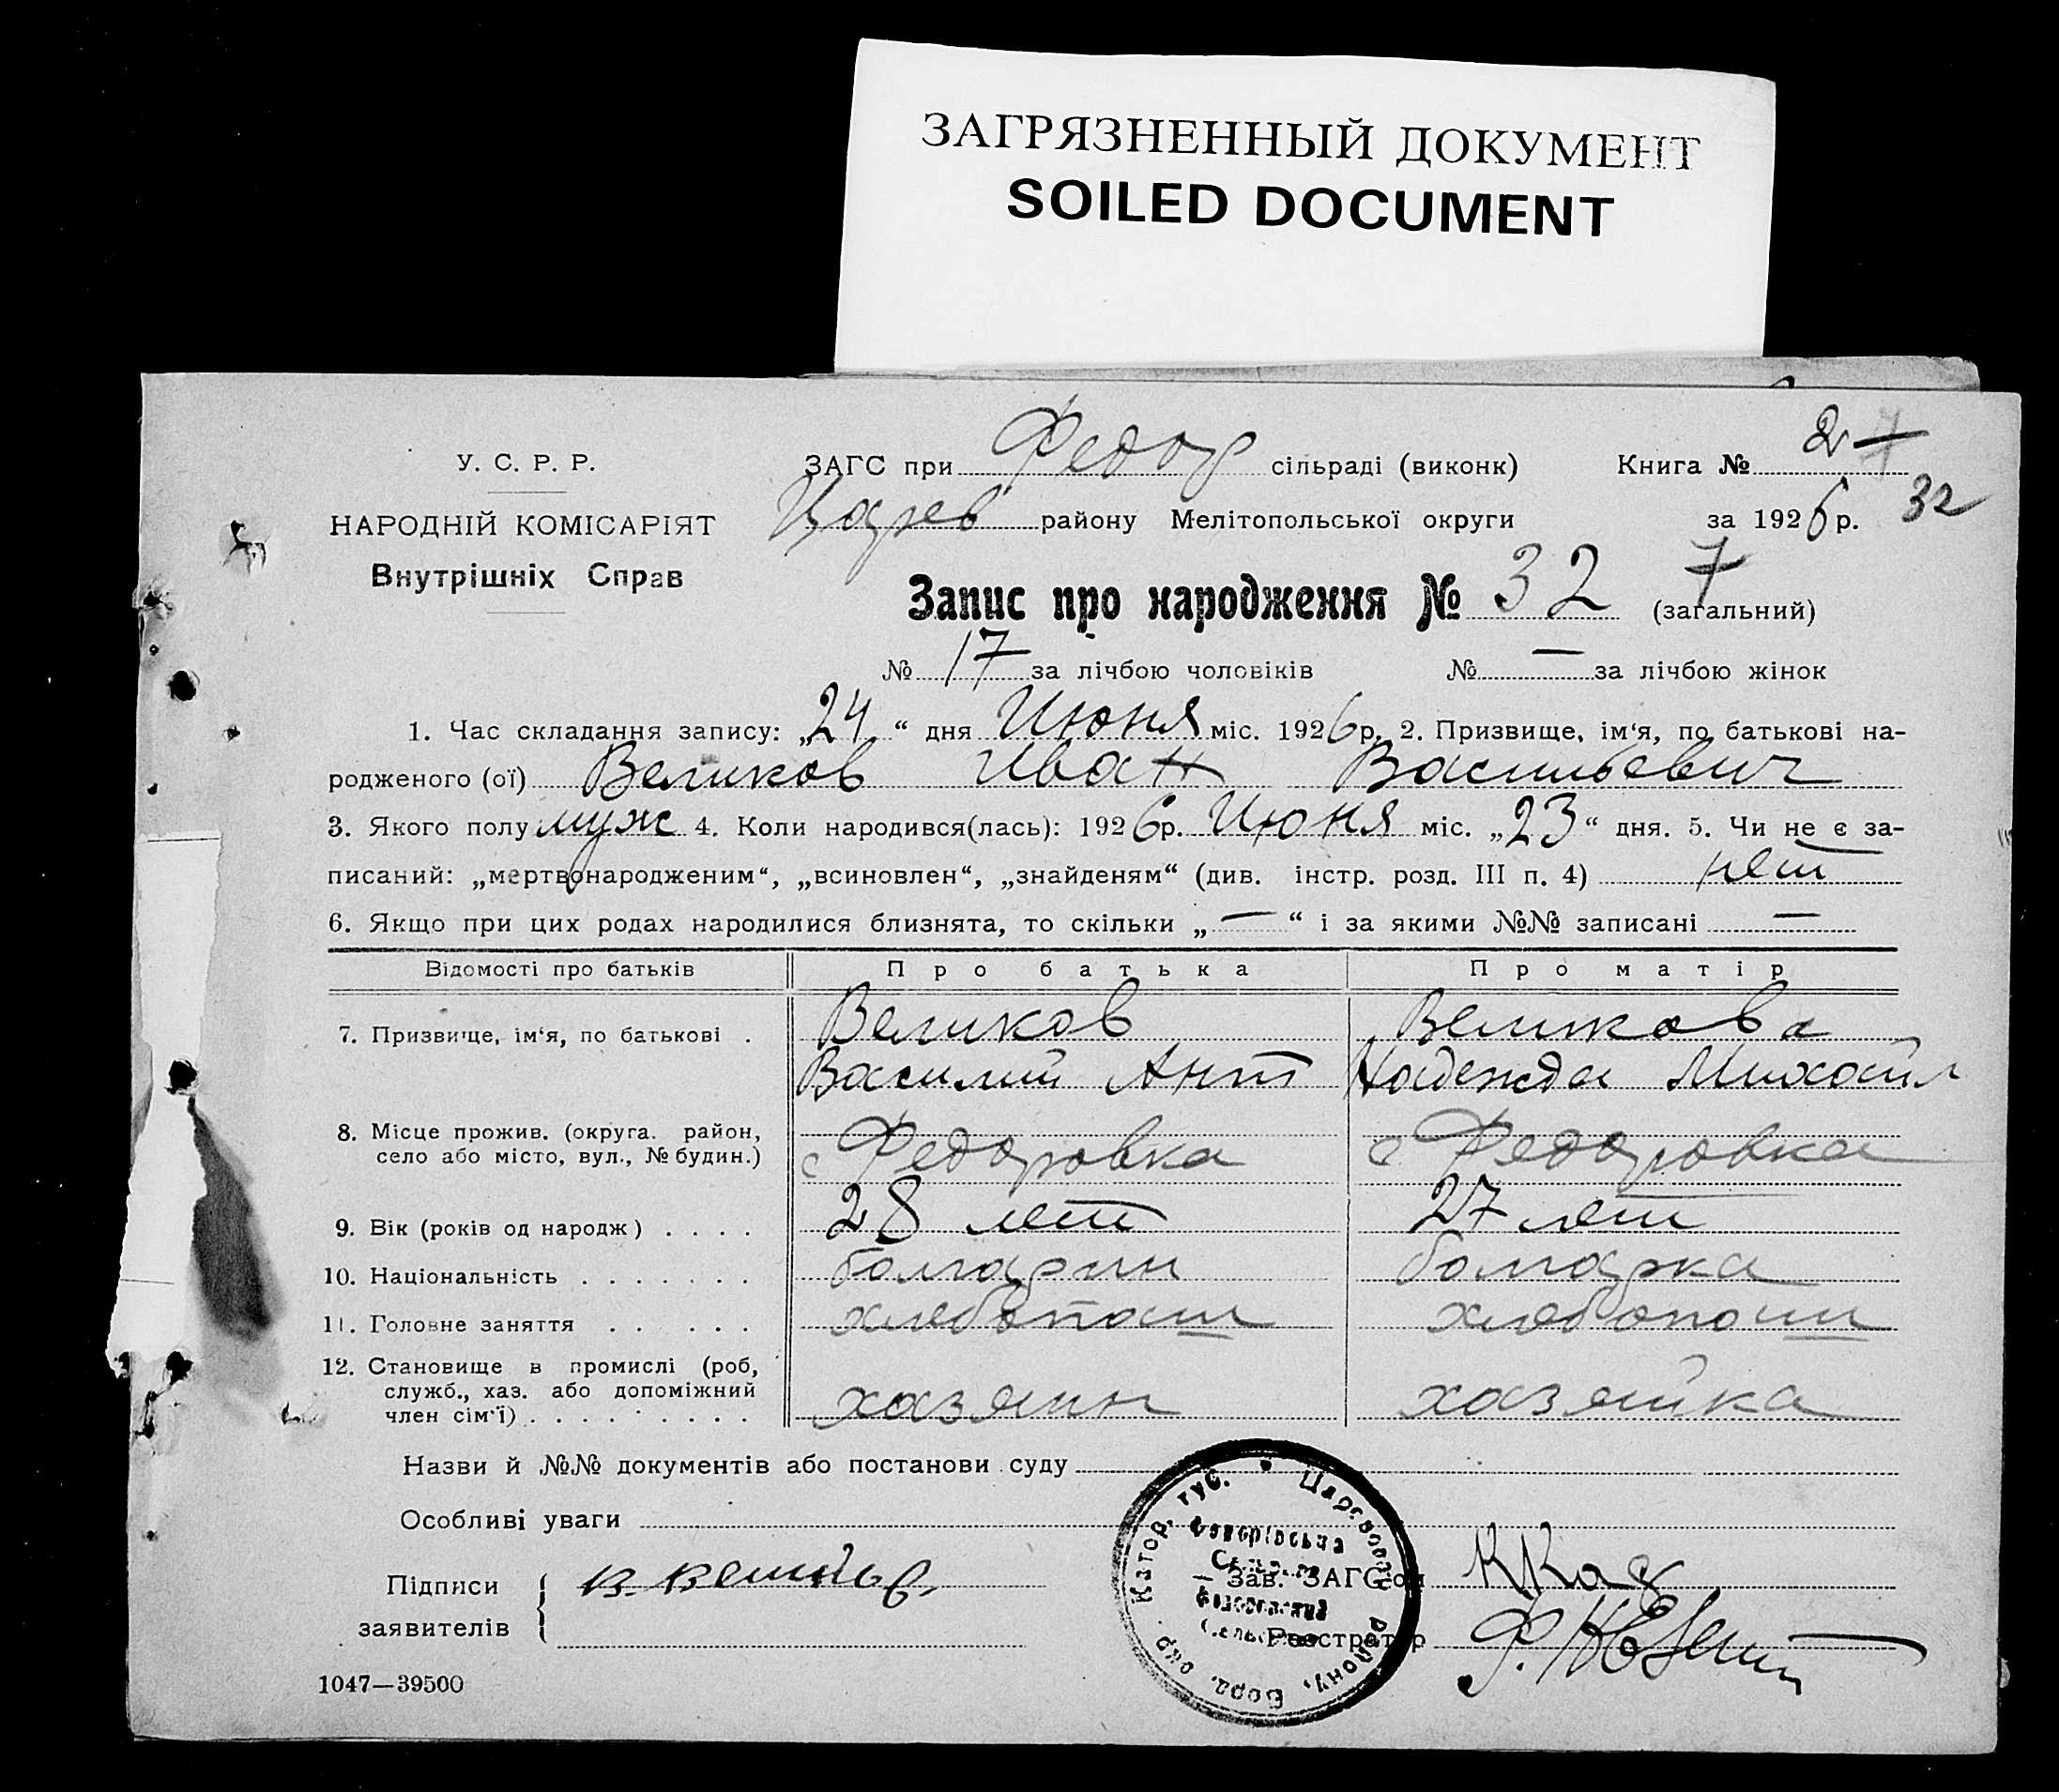 ЗАГРЯЗНЕННЫЙ ДОКУМЕНТ
SOILED DOCUMENT
У. С. Р. Р.
НАРОДНІЙ КОМІСАРІЯТ
Внутрішніх Справ
ЗАГС при Федор сільраді (виконк) Книга № 2
Царев району Мелітопольської округи за 1926 р. 32
Запис про народження № 32 7 (загальний)
№ 17 за лічбою чоловіків № — за лічбою жінок
1. Час складання запису: „24“ дня Июня міс. 1926 р. 2. Призвище, ім‘я, по батькові на-
родженого (ої) Великов Иван Васильевич
3. Якого полу муж 4. Коли народився(лась): 1926 р. Июня міс. „23“ дня. 5. Чи не є за-
писаний: „мертвонародженим“, „всиновлен“, „знайденям“ (див. інстр. розд. III п. 4) нет
6. Якщо при цих родах народилися близнята, то скільки „—“ і за якими №№ записані —
Відомості про батьків Про батька Про матір
7. Призвище, ім‘я, по батькові . Великов Великова
Василий Ант Надежда Михайл
8. Місце прожив. (округа. район,
село або місто, вул., № будин.) с Федоровка с Федоровка
9. Вік (років од народж) . . . . 28 лет 27 лет
10. Національність . . . . . . . болгарин болгарка
11. Головне заняття . . . . . хлебопаш хлебопаш
12. Становище в промислі (роб,
служб., хаз. або допоміжний
член сім‘ї) . . . . . . . . . хазяин хазяйка
Назви й №№ документів або постанови суду
Особливі уваги
Підписи
заявителів
Зав. ЗАГСом
Реєстратор
Катор. губ. Цареводар району, Берд. окр.
1047—39500